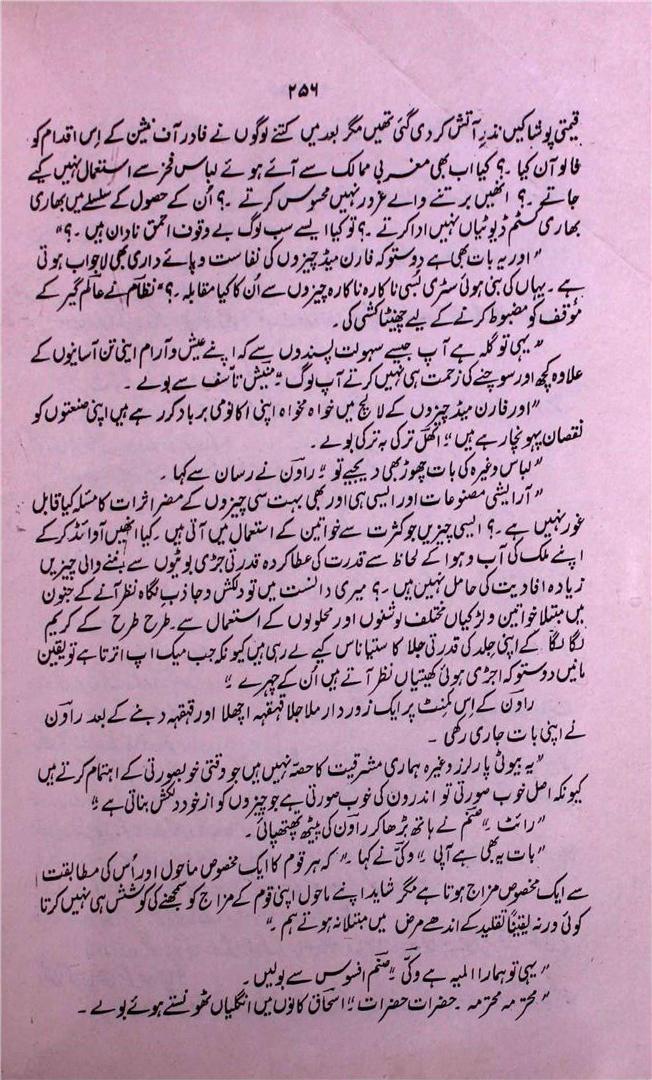 ۲۵۶
قیمتی پوشاکیں نذرِ آتش کر دی گئی تھیں مگر بعد میں کتنے لوگوں نے فادر آف نیشن کے اِس اقدام کو
فالو آن کیا ۔؟ کیا اب بھی مغربی ممالک سے آئے ہوئے لباس فخر سے استعمال نہیں کیے
جاتے ۔؟ انھیں برتنے والے غرور نہیں محسوس کرتے ۔؟ اُن کے حصول کے سلسلے میں بھاری
بھاری کسٹم ڈیوٹیاں نہیں ادا کرتے ۔؟ تو کیا ایسے سب لوگ بے وقوف احمق نادان ہیں ۔؟"
"اور یہ بات بھی ہے دوستو کہ فارن میڈ چیزوں کی نفاست و پائے داری بھی لاجواب ہوتی
ہے ۔ یہاں کی بنی ہوئی سٹری بُسی ناکارہ ناکارہ چیزوں سے اُن کا کیا مقابلہ ۔؟" نظام نے عالم گیر کے
مؤقف کو مضبوط کرنے کے لیے چھینٹا کشی کی ۔
"یہی تو گلہ ہے آپ جیسے سہولت پسندوں سے کہ اپنے عیش و آرام اپنی تن آسانیوں کے
علاوہ کچھ اور سوچنے کی زحمت ہی نہیں کرتے آپ لوگ ۔" منیش تاسف سے بولے ۔
"اور فارن میڈ چیزوں کے لالچ میں خواہ مخواہ اپنی اکانومی برباد کر رہے ہیں اپنی صنعتوں کو
نقصان پہونچا رہے ہیں ۔" اتھل ترکی بہ ترکی بولے ۔
"لباس وغیرہ کی بات چھوڑ بھی دیجیے تو ۔" راون نے رسان سے کہا ۔
"آرایشی مصنوعات اور ایسی ہی اور بھی بہت سی چیزوں کے مضر اثرات کا مسٔلہ کیا قابل
غور نہیں ہے ۔؟ ایسی چیزیں جو کثرت سے خواتین کے استعمال میں آتی ہیں ۔ کیا انھیں آوائڈ کر کے
اپنے ملک کی آب و ہوا کے لحاظ سے قدرت کی عطا کردہ قدرتی جڑی بوٹیوں سے بننے والی چیزیں
زیادہ افادیت کی حامل نہیں ہیں ۔؟ میری دانست میں تو دلکش و جاذبِ نگاہ نظر آنے کے جنون
میں مبتلا خواتین و لڑکیاں مختلف لوشنوں اور محلولوں کے استعمال سے ۔ طرح طرح کے کریم
لگا لگا کے اپنی جلد کی قدرتی جلا کا ستیاناس کیے لے رہی ہیں کیونکہ جب میک اپ اترتا ہے تو یقین
مانیں دوستو کہ اجڑی ہوئی کھیتیاں نظر آتے ہیں اُن کے چہرے ۔"
راون کے اِس کمنٹ پر ایک زور دار ملا جلا قہقہہ اچھلا اور قہقہہ دبنے کے بعد راون
نے اپنی بات جاری رکھی ۔
"یہ بیوٹی پارلرز وغیرہ ہماری مشرقیت کا حصہ نہیں ہیں جو وقتی خوبصورتی کے اہتمام کرتے ہیں
کیونکہ اصل خوب صورتی تو اندرون کی خوب صورتی ہے جو چیزوں کو از خود دلکش بناتی ہے ۔"
"رائٹ ۔" صنم نے ہاتھ بڑھا کر راون کی پیٹھ تھپتھپائی ۔
"بات یہ بھی ہے آپی ۔" وکی نے کہا ۔ "کہ ہر قوم کا ایک مخصوص ماحول اور اُس کی مطابقت
سے ایک مخصوص مزاج ہوتا ہے مگر شاید اپنے ماحول اپنی قوم کے مزاج کو سمجھنے کی کوشش ہی نہیں کرتا
کوئی ورنہ یقیناً تقلید کے اندھے مرض میں مبتلا نہ ہوتے ہم ۔"
"یہی تو ہمارا المیہ ہے وکی ۔" صنم افسوس سے بولیں ۔
"محترمہ محترمہ ۔ حضرات حضرات ۔" اسحاق کانوں میں انگلیاں ٹھونستے ہوئے بولے ۔